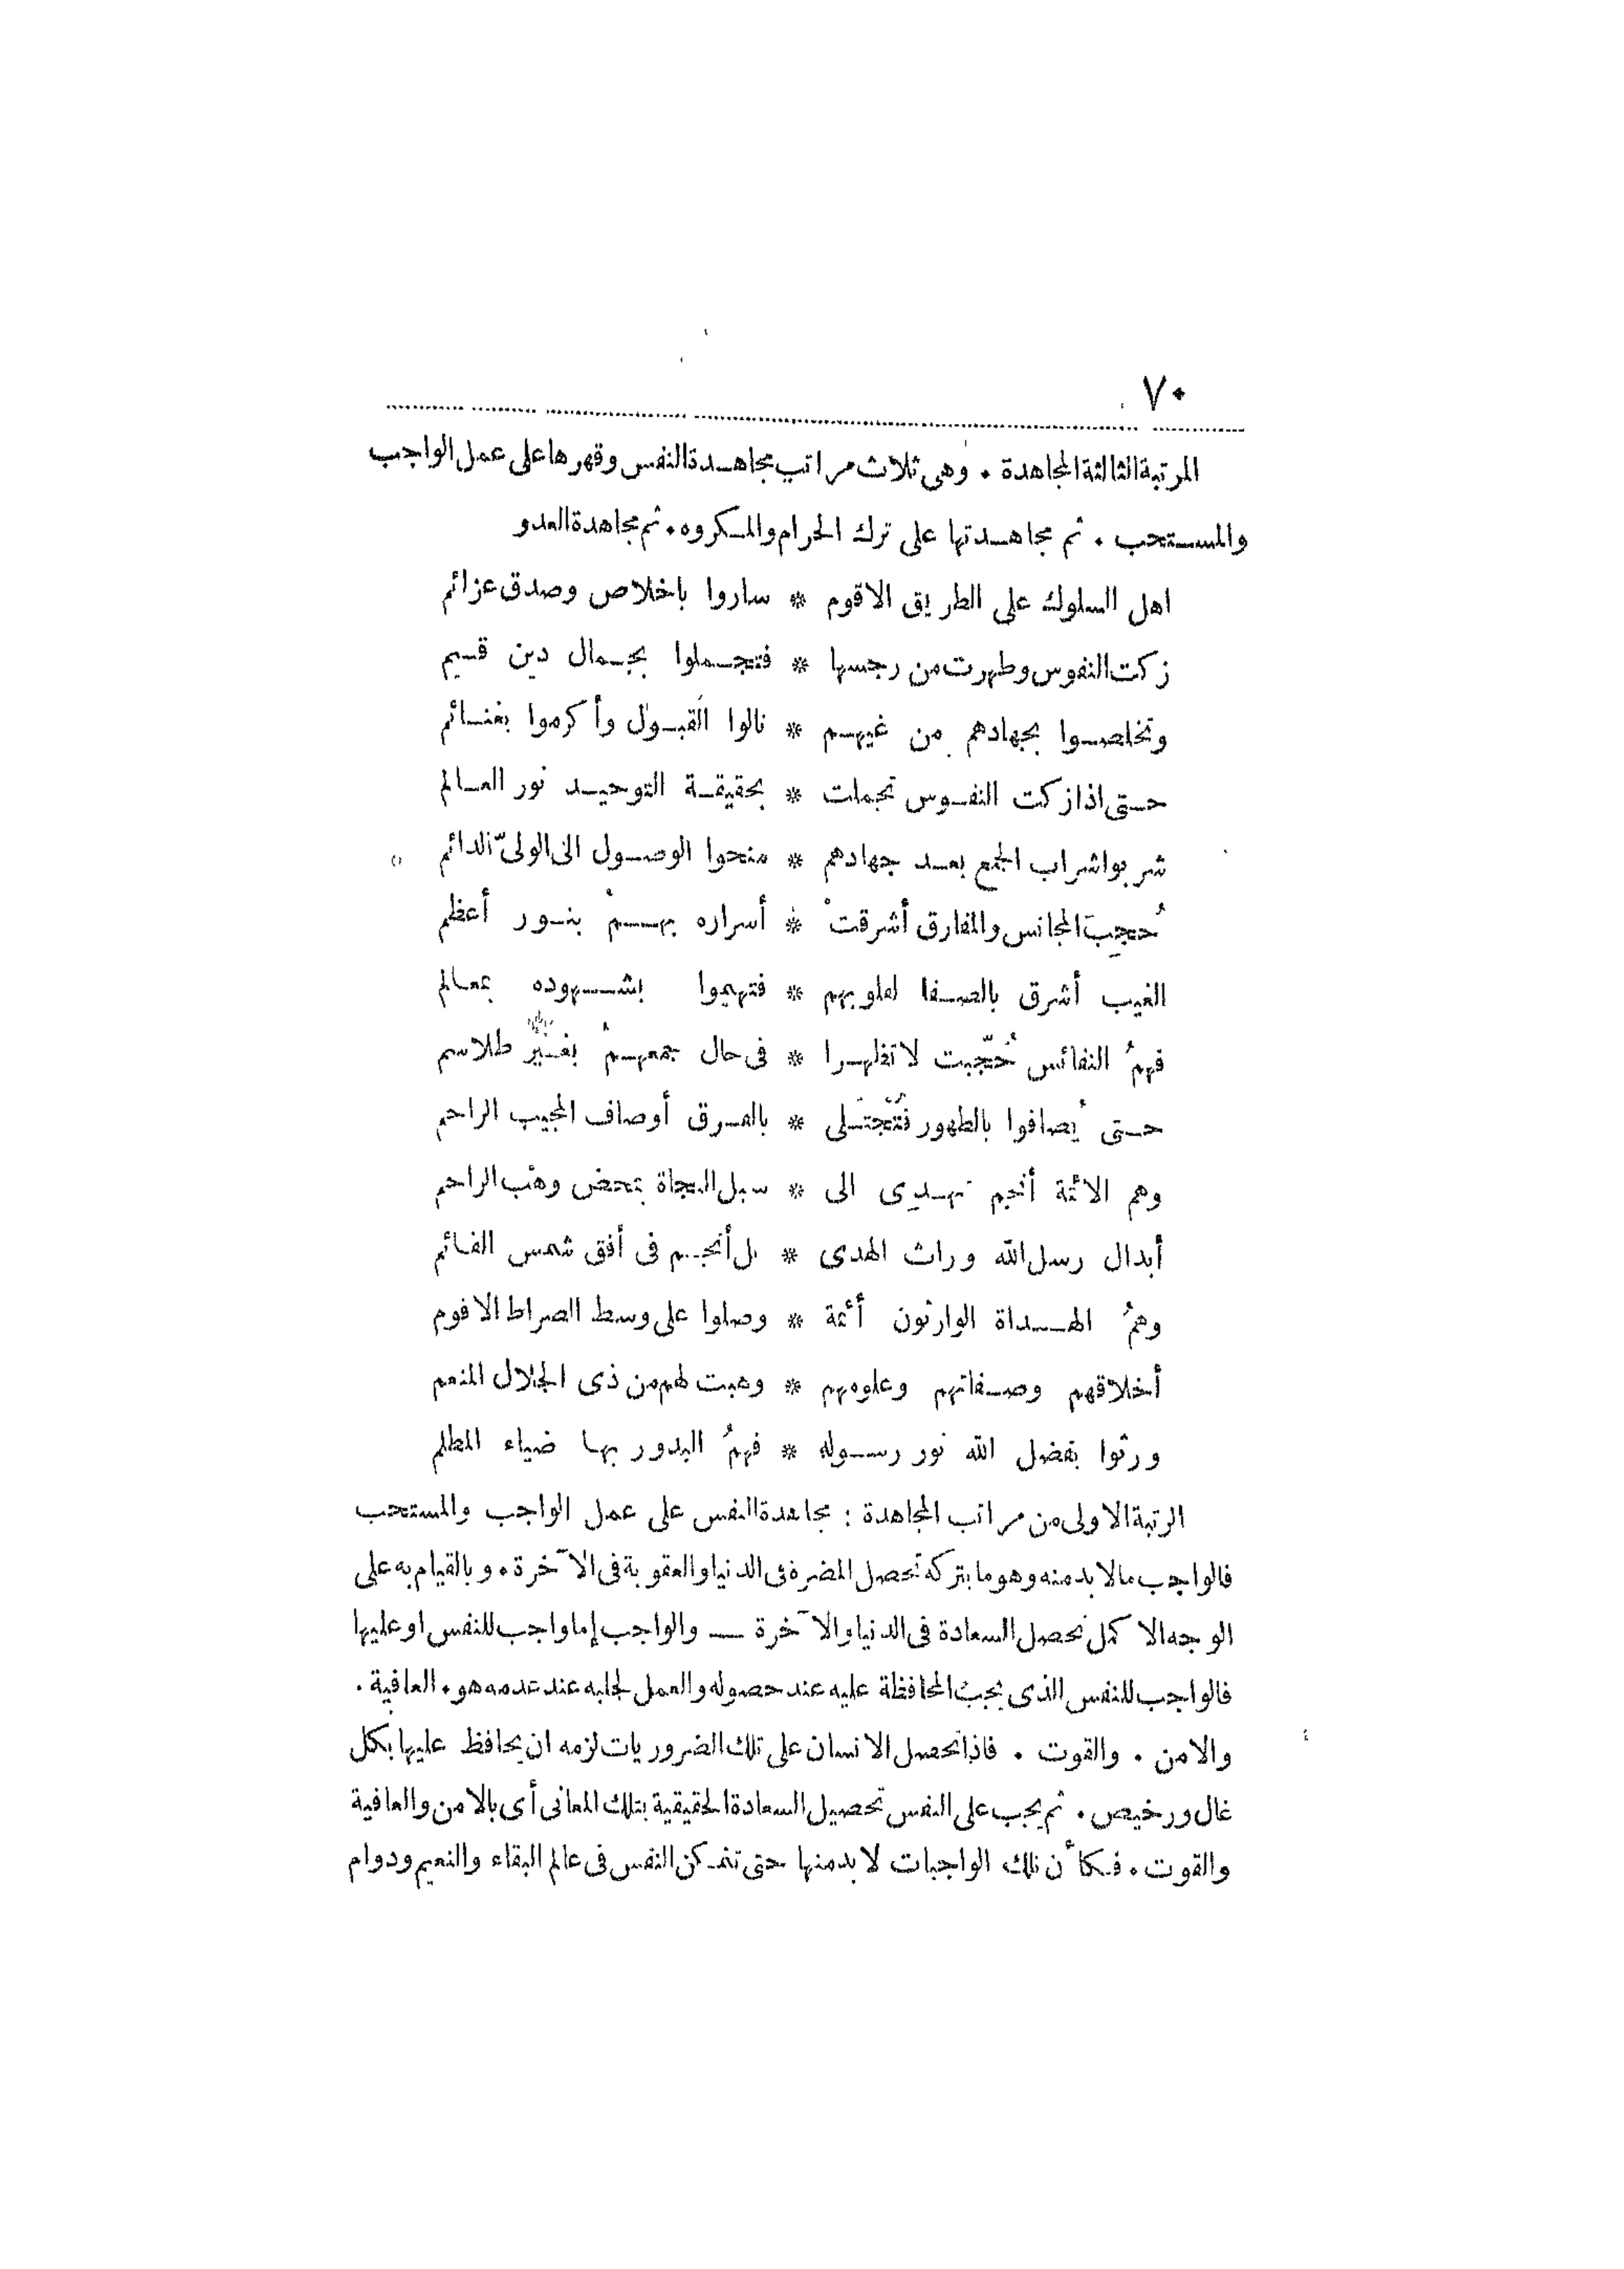 ٧٠
المرتبة الثالثة المجاهدة . وهى ثلاث مراتب مجاهدة النفس وقهرها على عمل الواجب
والمستحب . ثم مجاهدتها على ترك الحرام والمكروه . ثم مجاهدة العدو
اهل السلوك على الطريق الاقوم * ساروا باخلاص وصدق عزائم
زكت النفوس وطهرت من رجسها * فتجملوا بجمال دين قيم
وتخلصوا بجهادهم من غيهم * نالوا القبول وأكرموا بغنائم
حتى اذا زكت النفوس تجملت * بحقيقة التوحيد نور العالم
شربوا شراب الجمع بعد جهادهم * منحوا الوصول الى الولىّ الدائم
حُجِبَ المجانس والمفارق أشرقتْ * أسراره بهمْ بنور أعظم
الغيب أشرق بالصفا لقلوبهم * فتهيموا بشهوده بمعالم
فهمُ النفائس حُجّبت لا تظهرا * فى حال جمعهمُ بغير طلاسم
حتى يُصافوا بالطهور فتُجتلى * بالفرق أوصاف المجيب الراحم
وهم الائمة أنجم تهدى الى * سبل النجاة بمحض وهب الراحم
أبدال رسل الله وراث الهدى * بل أنجم فى أفق شمس القائم
وهمُ الهداة الوارثون أئمة * وصلوا على وسط الصراط الاقوم
أخلاقهم وصفاتهم وعلومهم * وهبت لهم من ذى الجلال المنعم
ورثوا بفضل الله نور رسوله * فهمُ البدور بها ضياء المظلم
الرتبة الاولى من مراتب المجاهدة : مجاهدة النفس على عمل الواجب والمستحب
فالواجب مالا بد منه وهو ما بتركه تحصل المضرة فى الدنيا والعقوبة فى الآخرة . وبالقيام به على
الوجه الاكمل تحصل السعادة فى الدنيا والآخرة — والواجب إما واجب للنفس او عليها
فالواجب للنفس الذى يجب المحافظة عليه عند حصوله والعمل لجلبه عند عدمه هو . العافية .
والامن . والقوت . فاذا تحصل الانسان على تلك الضروريات لزمه ان يحافظ عليها بكل
غال ورخيص . ثم يجب على النفس تحصيل السعادة الحقيقية بتلك المعانى أى بالامن والعافية
والقوت . فكأن تلك الواجبات لا بد منها حتى تتمكن النفس فى عالم البقاء والنعيم ودوام